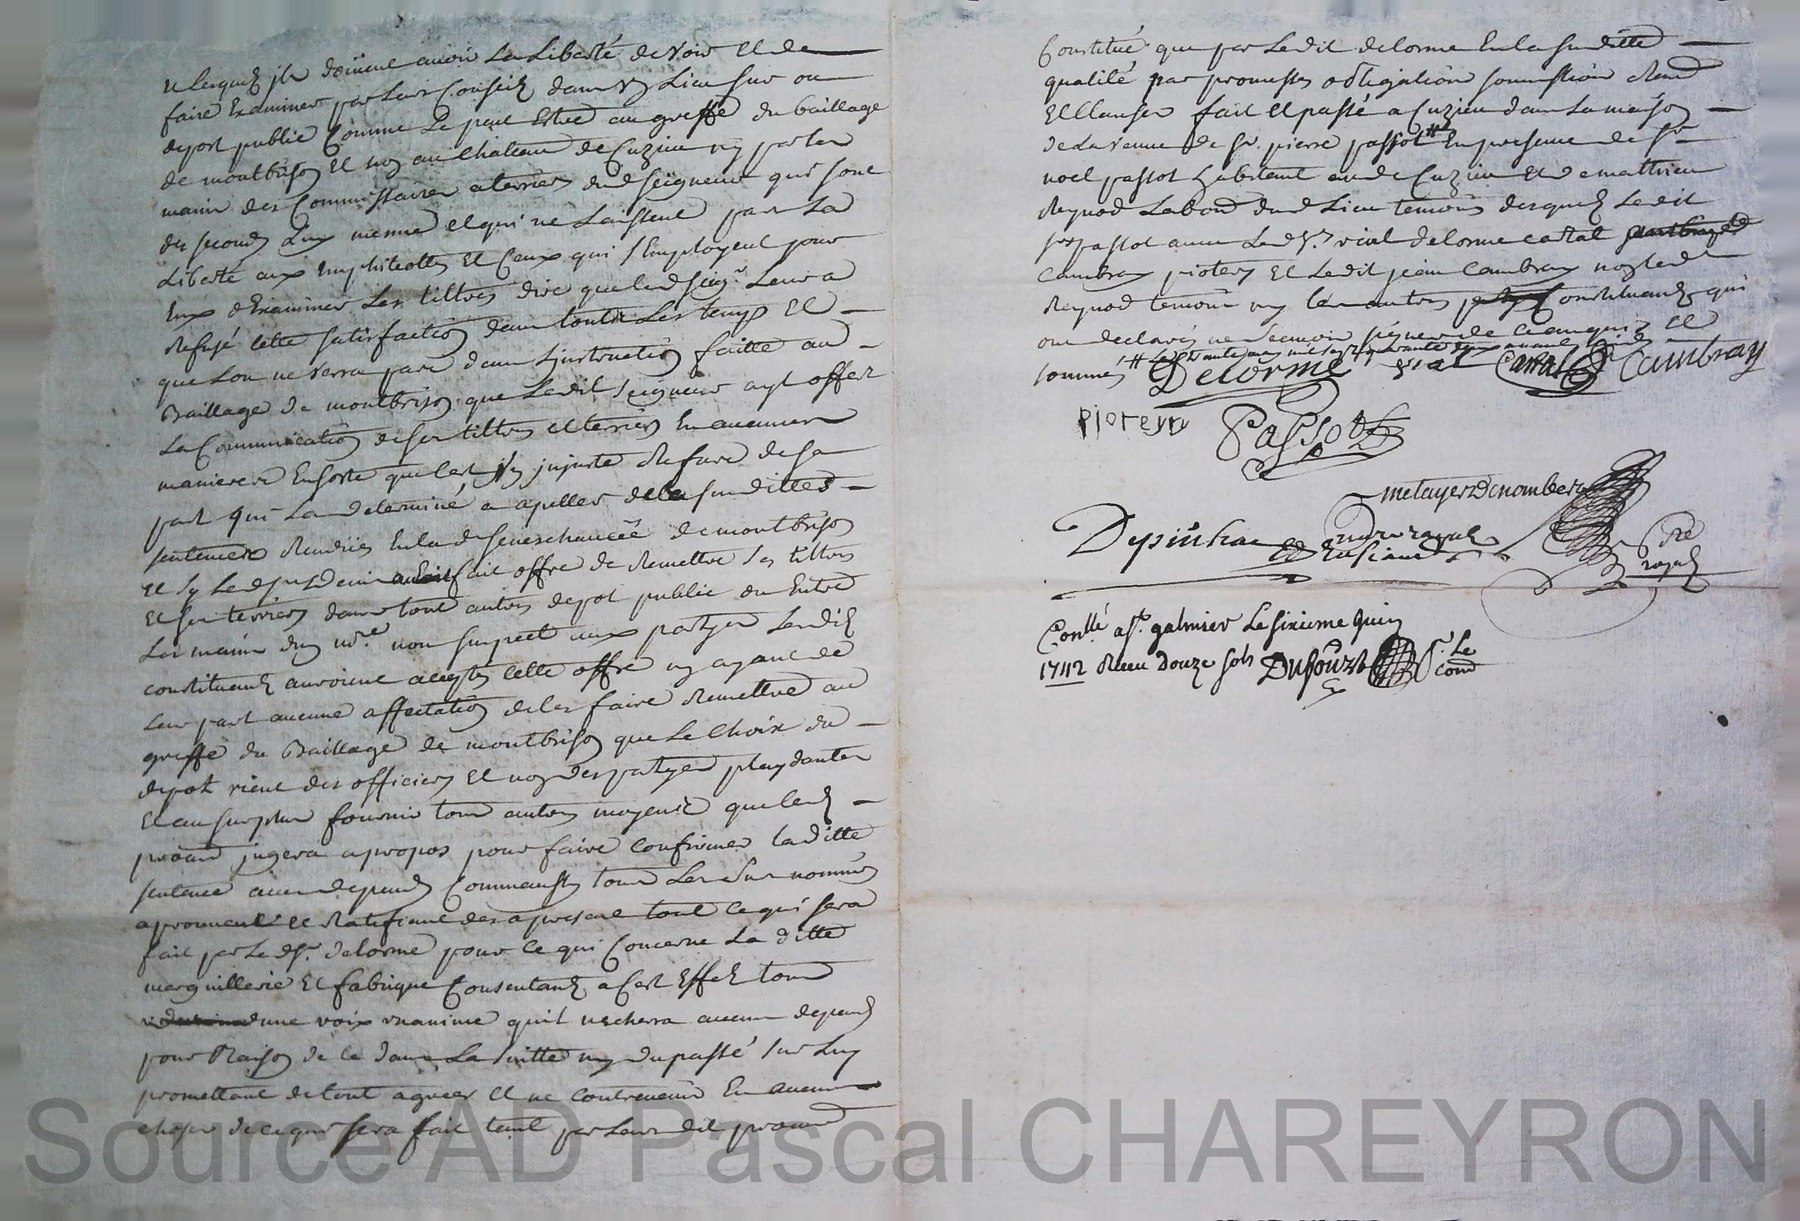 et lesquels ils doivent avoir la liberté de voir et de
faire examiner par leurs conseils dans un lieu sur ou
depost public comme le peut estre au greffe du baillage
de montbrison et non au chateau de Cuzieu ny par les
mains des Commissaires a terriers dud seigneur qui sont
des seconds eux mesme et qui ne laissent pas la
liberté aux emphiteottes et ceux qui s'employent pour
eux d'examiner les tiltres dire que led seigr. leur a
refusé cette satisfaction dans touts les temps et
que lon ne verra pas dans l'instruction faitte au
Baillage de montbrison que ledit seigneur ayt offert
la Communication de ses tiltres et terriers en aucunes
manieres en sorte que c'est un injuste refus de sa
part qui la determiné a apeller de la susditte
sentence rendue en la d senechaucée de montbrison
et sy le dsr Demir avoit fait offre de remettre ses tiltres
et ses terriers dans tout autres depot public ou entre
les mains d'un nre. non suspect aux partyes lesdits
constituants auroient acepté cette offre ny ayant de
leur part aucune affectation de les faire remettre au
greffe du Baillage de montbrison que le choix du
depot vient des officiers et non des partyes playdantes
et au surplus fournir tous autres moyens que led
procur jugera apropos pour faire confirmer laditte
sentence avec depends Comme aussy tous les sus nommés
aprouvent et ratifient des apresent tout ce qui sera
fait par le dsr. delorme pour ce qui concerne la ditte
marguillerie et fabrique Consentants a cest effet tous
d'une voix unanime quil ne cherra aucuns depends
pour raison de ce dans la suitte ny du passé sur luy
promettant de tout agreer et ne contrevenir en aucunes
choses de ce qui sera fait tant par leur dit procur
Constitué que par ledit delorme en la susditte
qualité par promesses obligation soumission renon
et clauses fait et passé a Cuzieu dans la maison
de la veuve de sr. pierre passot # en presence de sr
noel passot habitant aud Cuzieu et de matthieu
Reynod Labour dud lieu temoins desquels ledit
sr passot avec led sr. vial delorme cattal
Cambray pioteyry et ledit jean Cambray non led
Reynod temoin ny les autres Constituants qui
ont declarés ne scavoir signer de ce enquis et
sommés # le trante may mil sept quarante deux avant midy
Delorme vial Cattal Cambray
pioteyry Passot
metayer Denombera
Depinhac
nore royal
Nre
royal
Conllé a st. galmier le sixieme Juin
1742 Receu douze sols Dufour Sr. le
Com
Source AD Pascal CHAREYRON